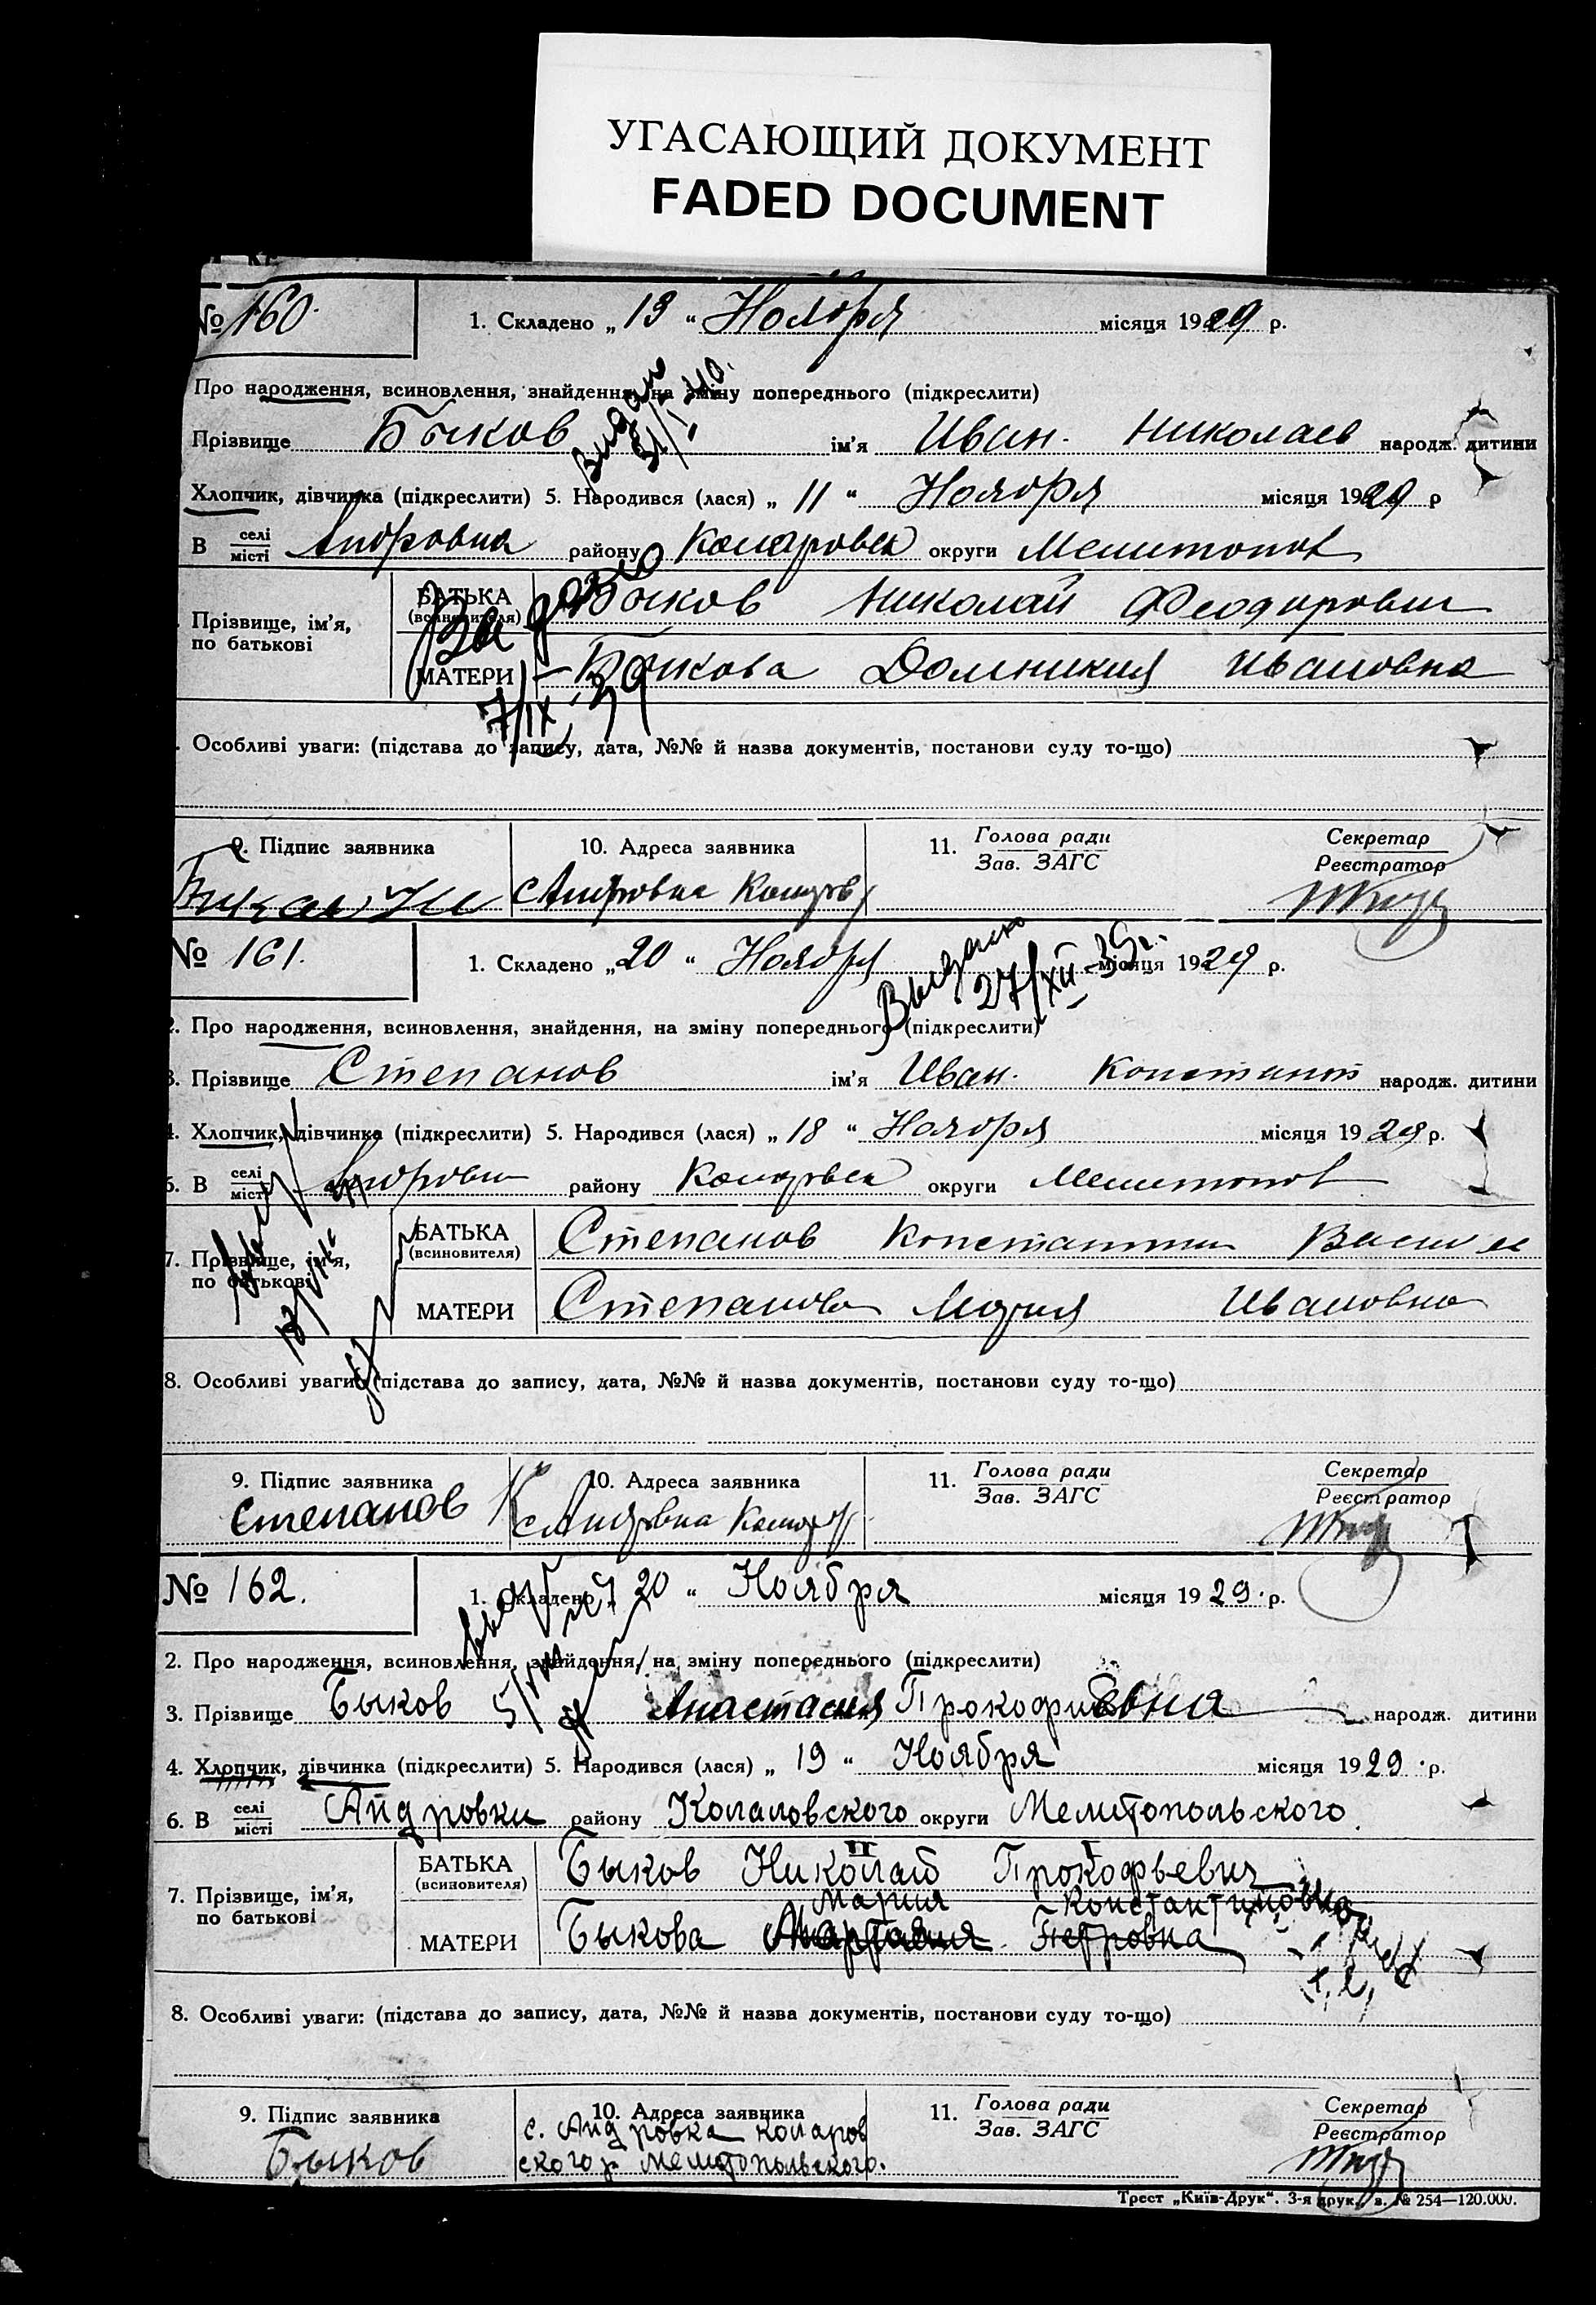 УГАСАЮЩИЙ ДОКУМЕНТ
FADED DOCUMENT
№ 160.
1. Складено „ 13 “ Ноября місяця 1929 р.
Про народження, всиновлення, знайдення, на зміну попереднього (підкреслити)
Прізвище Быков ім’я Иван. Николаев народж. дитини
Хлопчик, дівчинка (підкреслити) 5. Народився (лася) „ 11 “ Ноября місяця 1929 р
В селі місті району округи Мелитопол
Прізвище, ім’я, по батькові
БАТЬКА (всиновителя) Быков Николай Феодорович
МАТЕРИ Быкова Домникия Ивановна
Выдано 7/IX 39
Особливі уваги: (підстава до запису, дата, №№ й назва документів, постанови суду то-що)
9. Підпис заявника 10. Адреса заявника 11. Голова ради Зав. ЗАГС Секретар Реєстратор
№ 161.
1. Складено „ 20 “ Ноября місяця 1929 р.
Выдано 27/XII-39г.
2. Про народження, всиновлення, знайдення, на зміну попереднього (підкреслити)
3. Прізвище Степанов ім’я Иван. Константин народж. дитини
4. Хлопчик, дівчинка (підкреслити) 5. Народився (лася) „ 18 “ Ноября місяця 1929 р.
6. В селі місті району округи Мелитопол
7. Прізвище, ім’я, по батькові
БАТЬКА (всиновителя) Степанов Константин
МАТЕРИ Степанова Мария Ивановна
8. Особливі уваги: (підстава до запису, дата, №№ й назва документів, постанови суду то-що)
9. Підпис заявника 10. Адреса заявника 11. Голова ради Зав. ЗАГС Секретар Реєстратор
Степанов К
№ 162.
1. Складено „ 20 “ Ноября місяця 1929 р.
2. Про народження, всиновлення, знайдення, на зміну попереднього (підкреслити)
3. Прізвище Быков Анастасия Прокофиевна народж. дитини
4. Хлопчик, дівчинка (підкреслити) 5. Народився (лася) „ 19 “ Ноября місяця 1929 р.
6. В селі місті Андровки району округи Мелитопольского.
7. Прізвище, ім’я, по батькові
БАТЬКА (всиновителя) Быков Николай Прокофьевич
Мария Константиновна
МАТЕРИ Быкова Петровна
8. Особливі уваги: (підстава до запису, дата, №№ й назва документів, постанови суду то-що)
9. Підпис заявника 10. Адреса заявника 11. Голова ради Зав. ЗАГС Секретар Реєстратор
Быков с. Андровка Коларов
ского р Мелитопольского.
Трест „Київ-Друк“. 3-я друк., з. № 254—120.000.